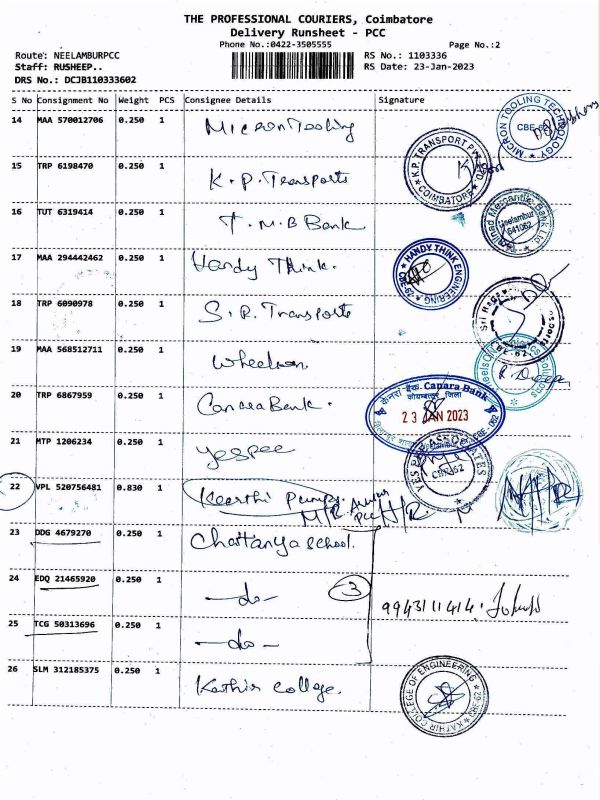 THE PROFESSIONAL COURIERS, Coimbatore
Delivery Runsheet - PCC
Phone No.:0422-3505555
Page No.:2
Route: NEELAMBURPCC
RS No.: 1103336
Staff: RUSHEEP..
RS Date: 23-Jan-2023
DRS No.: DCJB110333602
S No Consignment No Weight PCS Consignee Details Signature
14 MAA 570012706 0.250 1 Micron Tooling
MICRON TOOLING TECHNOLOGY
CBE-62
15 TRP 6198470 0.250 1 K.P. Transports
K.P. TRANSPORT PVT LTD
COIMBATORE
16 TUT 6319414 0.250 1 T.M.B Bank
Mercantile Bank Ltd
Neelambur
641062
17 MAA 294442462 0.250 1 Handy Think.
HANDY THINK ENGINEERING
18 TRP 6090978 0.250 1 S.R. Transports
19 MAA 568512711 0.250 1 Wheelson
20 TRP 6867959 0.250 1 Canara Bank.
केनरा बैंक Canara Bank
कोयम्बतूर जिला
23 JAN 2023
21 MTP 1206234 0.250 1 Yespee
22 VPL 520756481 0.830 1 Keerthi Pumps.
23 DDG 4679270 0.250 1 Chaitanya School.
24 EDQ 21465920 0.250 1 -do- 3
9943111414.
25 TCG 50313696 0.250 1 -do-
26 SLM 312185375 0.250 1 Kathir College.
KATHIR COLLEGE OF ENGINEERING